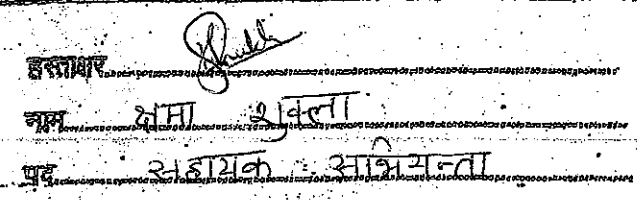 हस्ताक्षर Shukla
नाम क्षमा शुक्ला
पद सहायक अभियन्ता